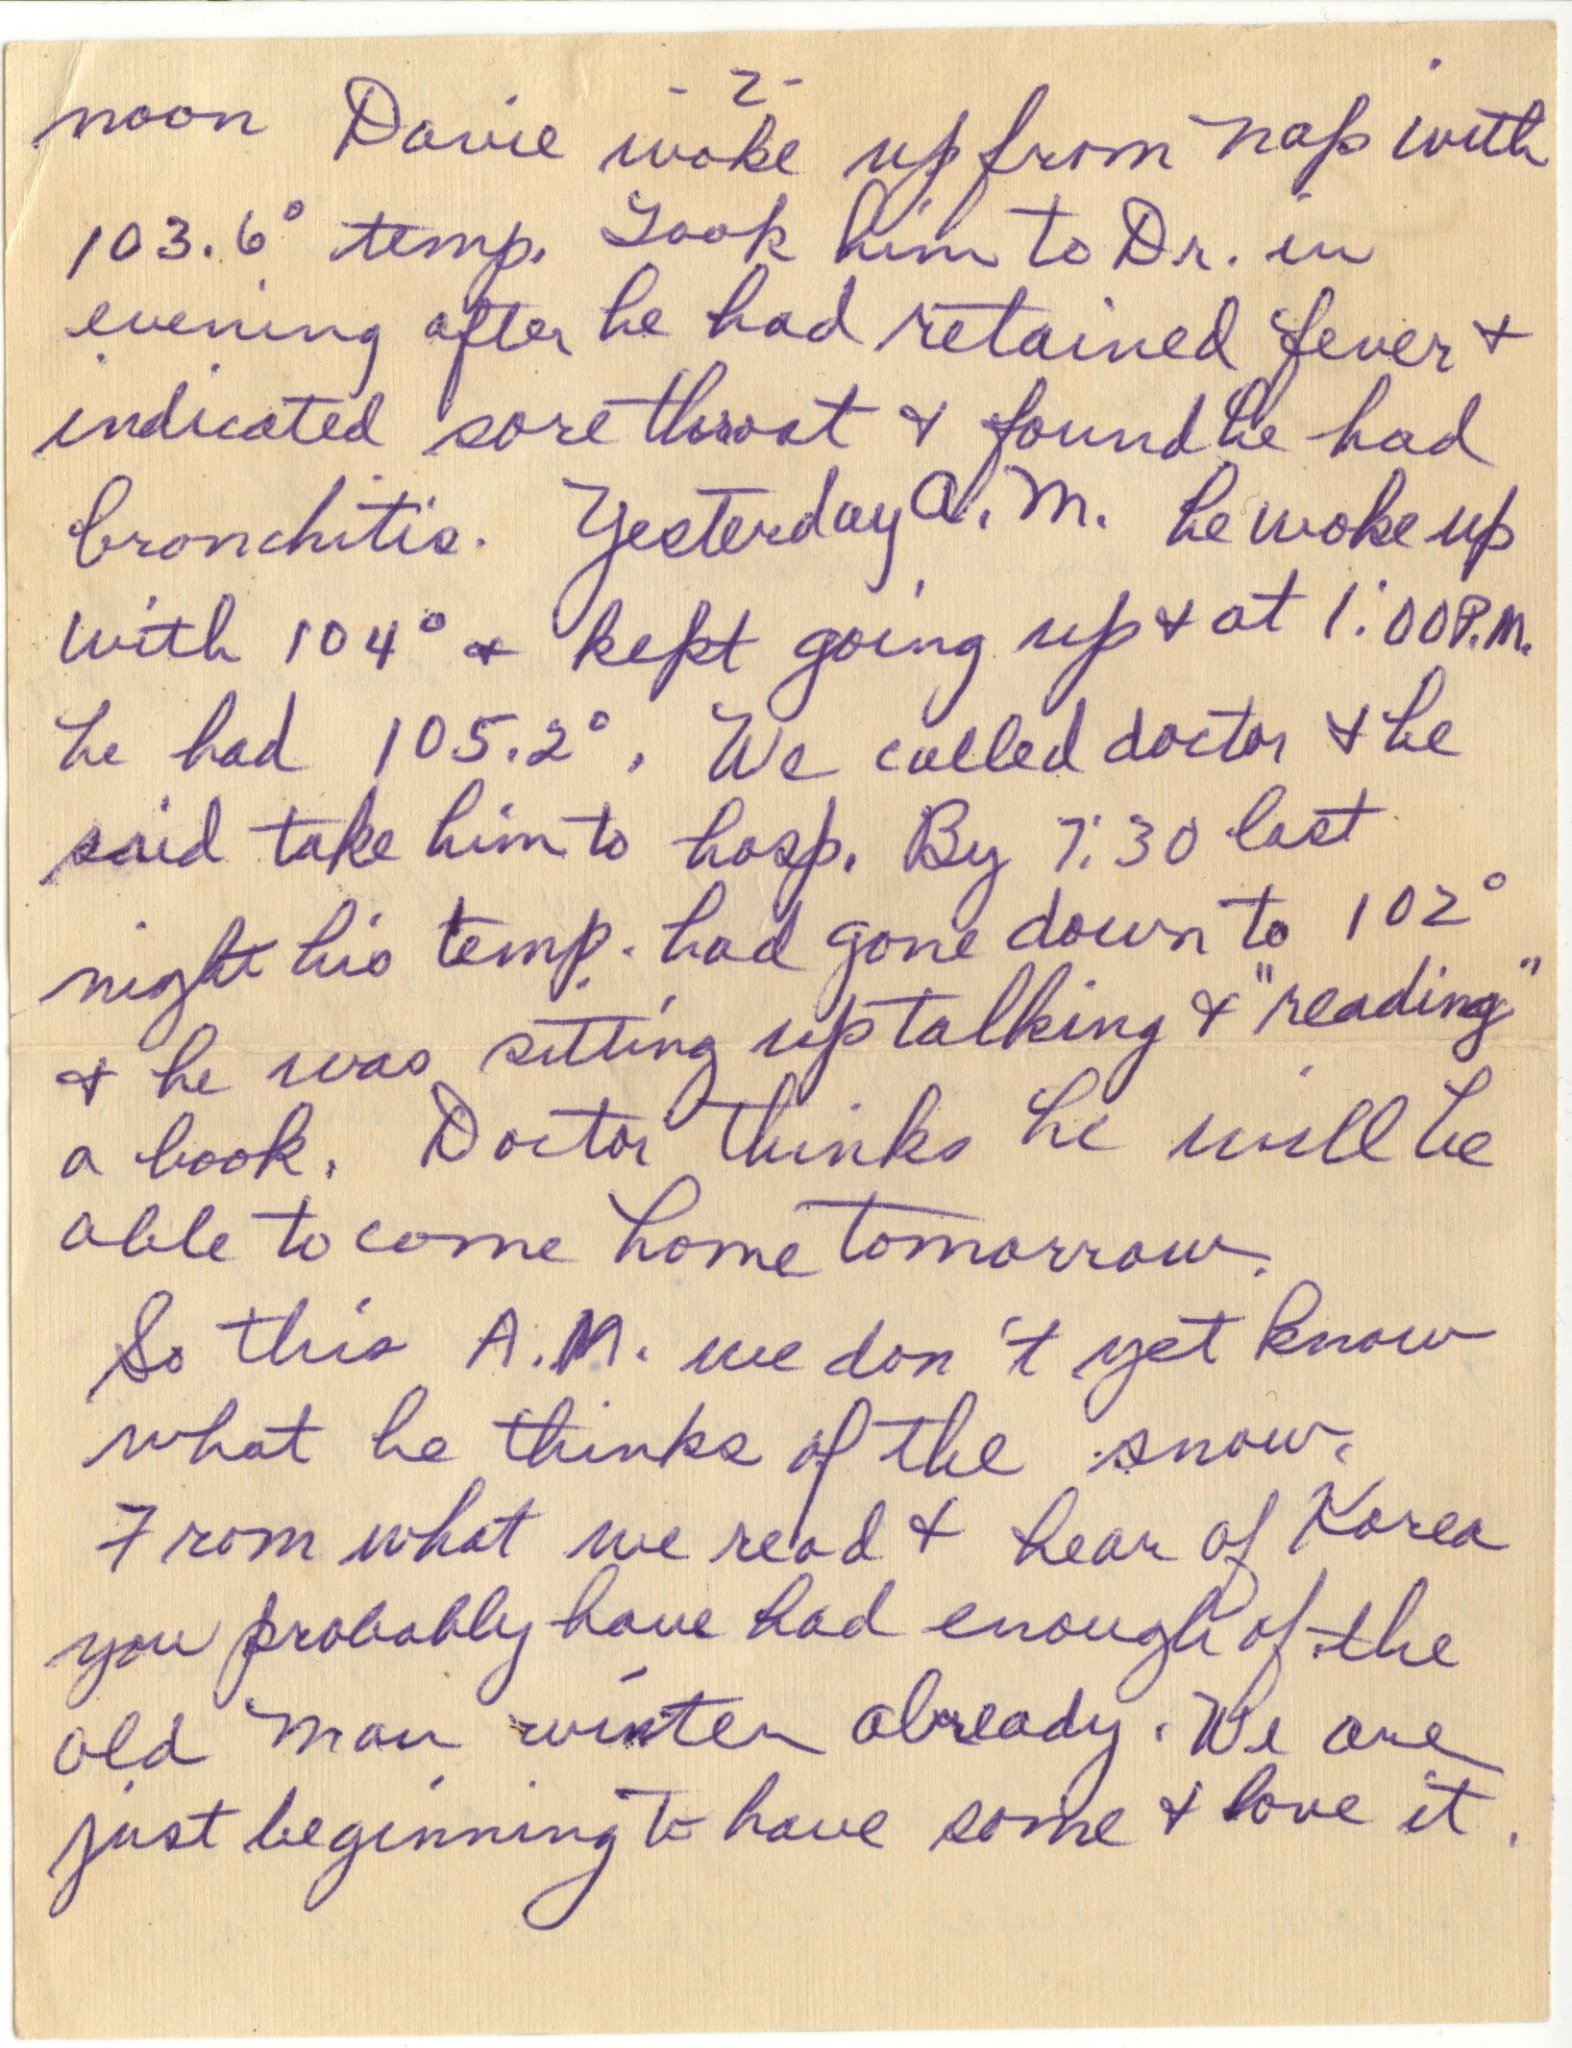 - 2 -
noon Davie woke up from nap with
103.6° temp. Took him to Dr. in
evening after he had retained fever &
indicated sore throat & found he had
bronchitis. Yesterday A.M. he woke up
with 104° & kept going up & at 1:00 P.M.
he had 105.2°. We called doctor & he
said take him to hosp. By 7:30 last
night his temp. had gone down to 102°
& he was sitting up talking & "reading"
a book. Doctor thinks he will be
able to come home tomorrow.
So this A.M. we don't yet know
what he thinks of the snow.
From what we read & hear of Korea
you probably have had enough of the
old man winter already. We are
just beginning to have some & love it.